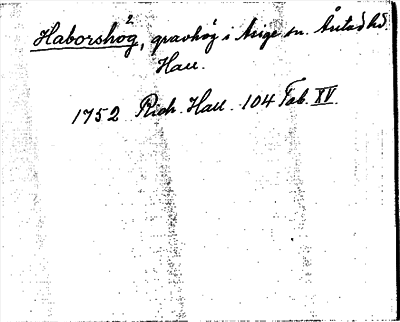 Haborshög², gravhög i Asige sn. Årstad hd.
Hall.
1752 Rich. Hall. 104 Tab. XV.